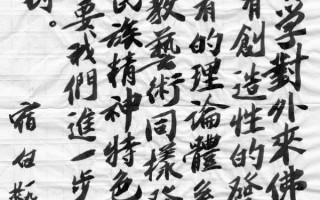 学對外來佛
有創造性的發
有的理論體系
教藝術同樣
民族精神特色
要我們進一步
討。
宿白